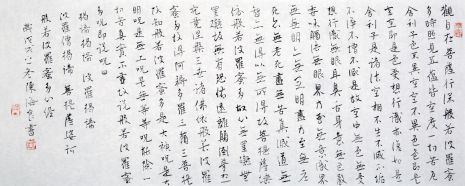 觀自在菩薩行深般若波羅蜜
多時照見五蘊皆空度一切苦厄
舍利子色不異空空不異色色即是
空空即是色受想行識亦復如是
舍利子是諸法空相不生不滅不垢
不淨不增不減是故空中無色無受
想行識無眼耳鼻舌身意無色聲
香味觸法無眼界乃至無意識界
無無明亦無無明盡乃至無老
死亦無老死盡無苦集滅道無
智亦無得以無所得故菩提薩埵
依般若波羅蜜多故心無罣礙無
罣礙故無有恐怖遠離顛倒夢想
究竟涅槃三世諸佛依般若波羅
蜜多故得阿耨多羅三藐三菩提
故知般若波羅蜜多是大神咒是大
明咒是無上咒是無等等咒能除一
切苦真實不虛故說般若波羅蜜
多咒即說咒曰
揭諦揭諦 波羅揭諦
波羅僧揭諦 菩提薩婆訶
般若波羅蜜多心經
冬陳海書